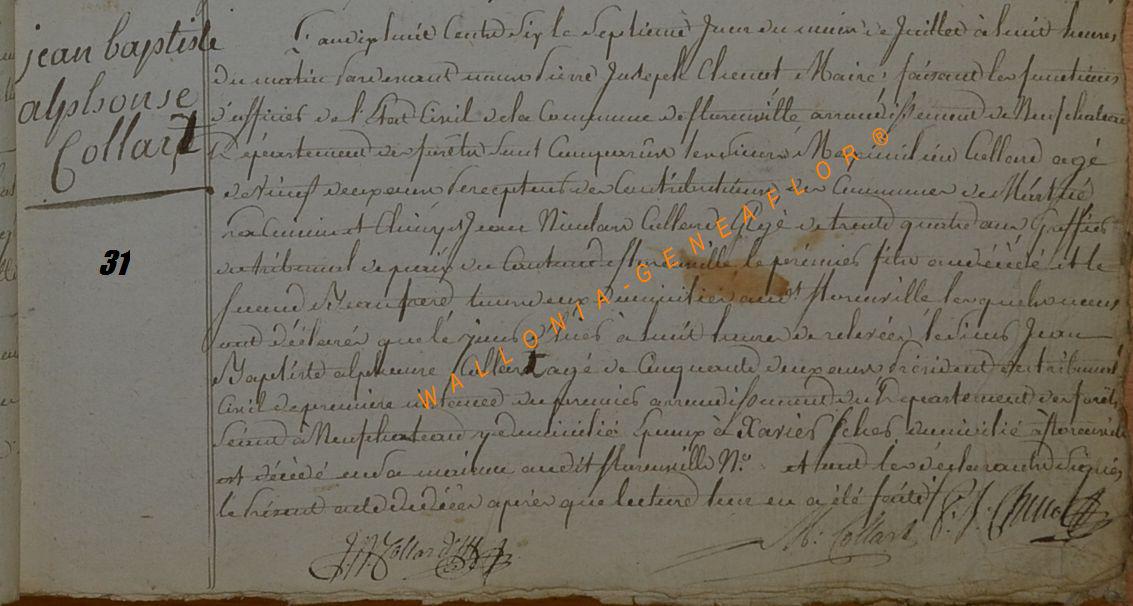 jean baptiste
alphonse
Collart
31
L'an dix huit Cents Six le Septieme Jour du mois de Juillet à huit heures
du matin Pardevant nous Pierre Joseph Chenot Maire, faisant les fonctions
d'officier de l'Etat Civil de la Commune de florenville arrondissement de Neufchateau
Département de forêts sont Comparus les sieurs Maximilien Collard agé
de vingt deux ans Percepteur des Contributions des Communes de
et Chiny et Jean Nicolas Collard agé de trente quatre ans Greffier
du tribunal de paix du Canton de florenville le premier fils au décédé et le
second Beaufrere tous deux domiciliés audt florenville lesquels nous
ont déclarés que le jour d'hier à huit heures de relevée le sieur Jean
Baptiste alphonse Collart agé de Cinquante deux ans Président du tribunal
Civil de premiere instance du premier arrondissement du Département de forêts
Séant à Neufchateau y domicilié Epoux à Xavier domicilié à florenville
est décédé en sa maison audit florenville No. et ont les déclarants Signés
le Présent acte de décès après que lecture leur en a été faite
J. N. Collard M. Collart P. J. Chenot
WALLONIA-GENEAFLOR ®